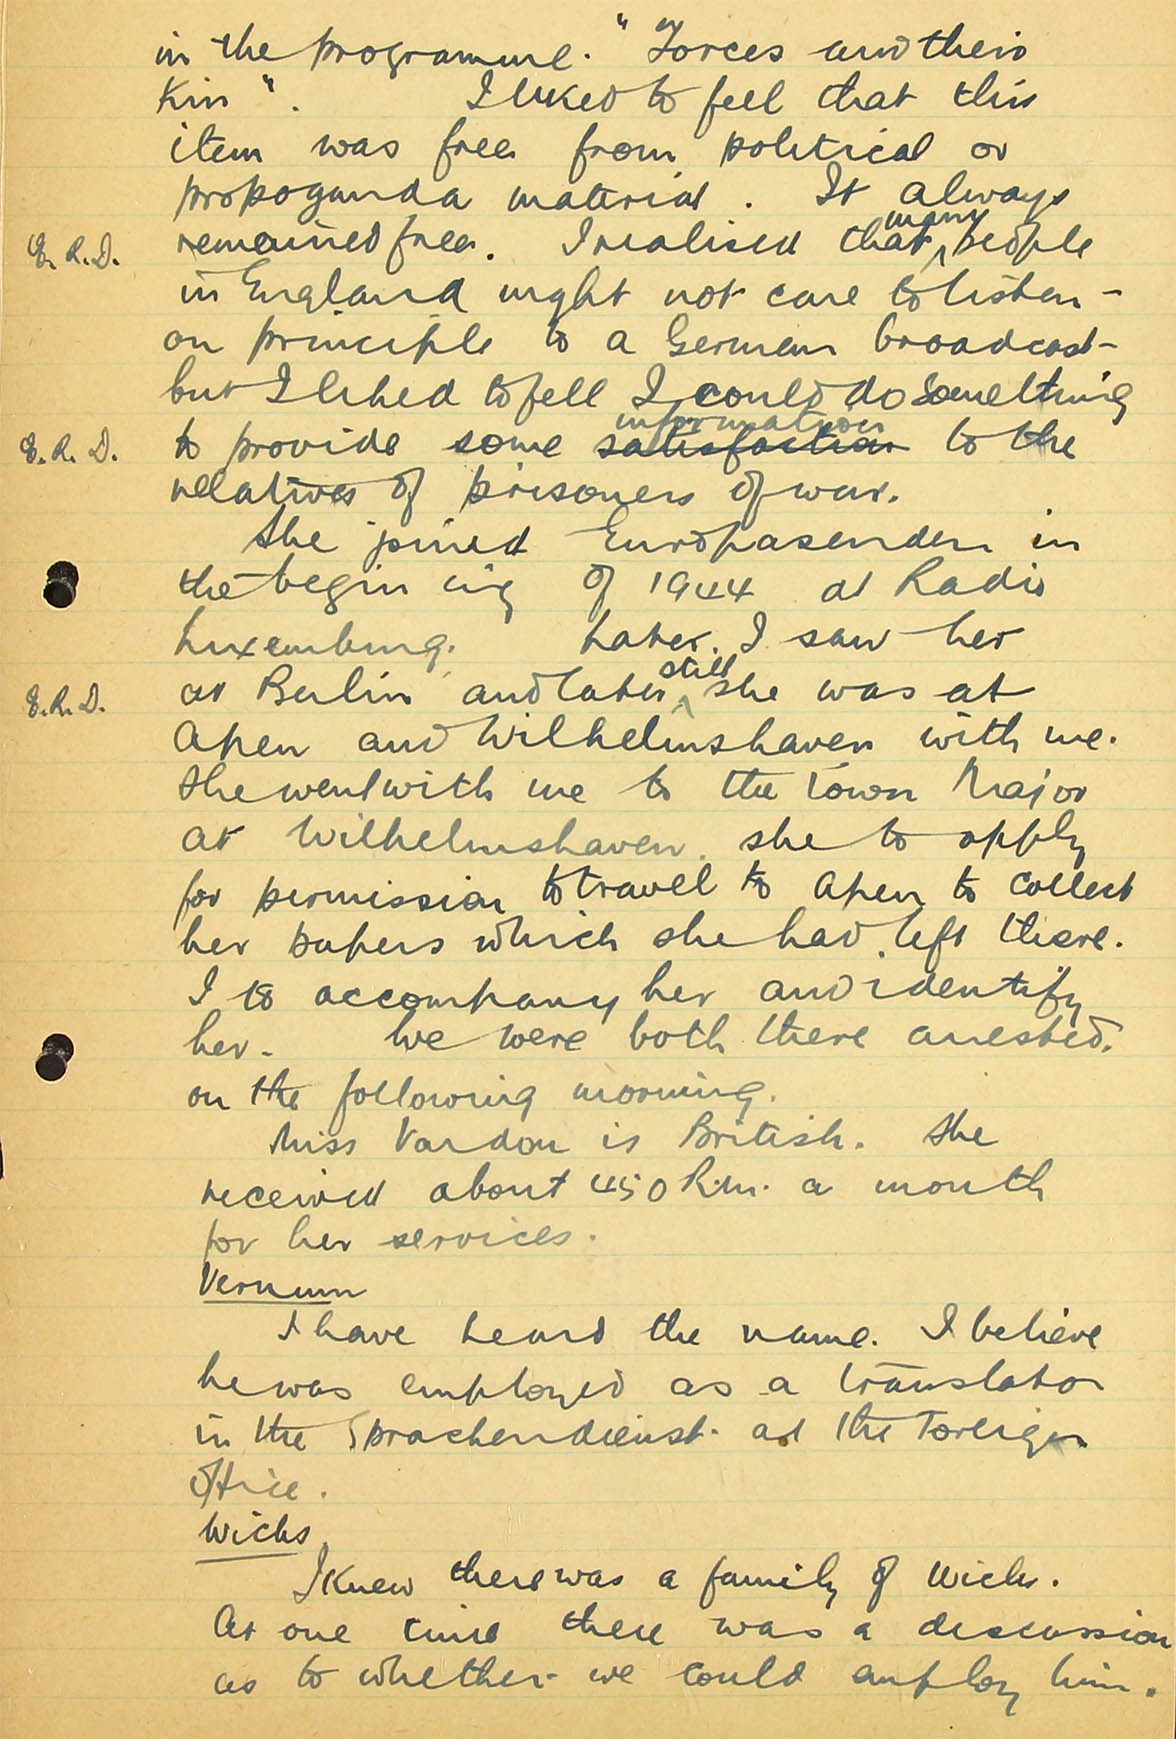 in the programme. "Forces and their
Kin". I liked to feel that this
item was free from political or
propoganda material. It always
many
E.R.D. remained free. I realised that ^ people
in England might not care to listen -
on principle to a German broadcast -
but I liked to fell I could do something
information
E.R.D. to provide some satisfaction to the
relatives of prisoners of war.
She joined Europasender in
the begin ing of 1944 at Radio
Luxemburg. Later. I saw her
still
E.R.D. at Berlin and later ^ she was at
Apen and Wilhelmshaven with me.
She went with me to the Town Major
at Wilhelmshaven. she to apply
for permission to travel to Apen to collect
her papers which she had left there.
I to accompany her and identify
her. We were both there arrested.
on the following morning.
Miss Vardon is British. She
received about 450 R.M. a month
for her services.
Vernum
I have heard the name. I believe
he was employed as a translator
in the Sprachendienst. at the Foreign
Office.
Wicks
I knew there was a family of Wicks.
At one time there was a discussion
as to whether we could employ him.